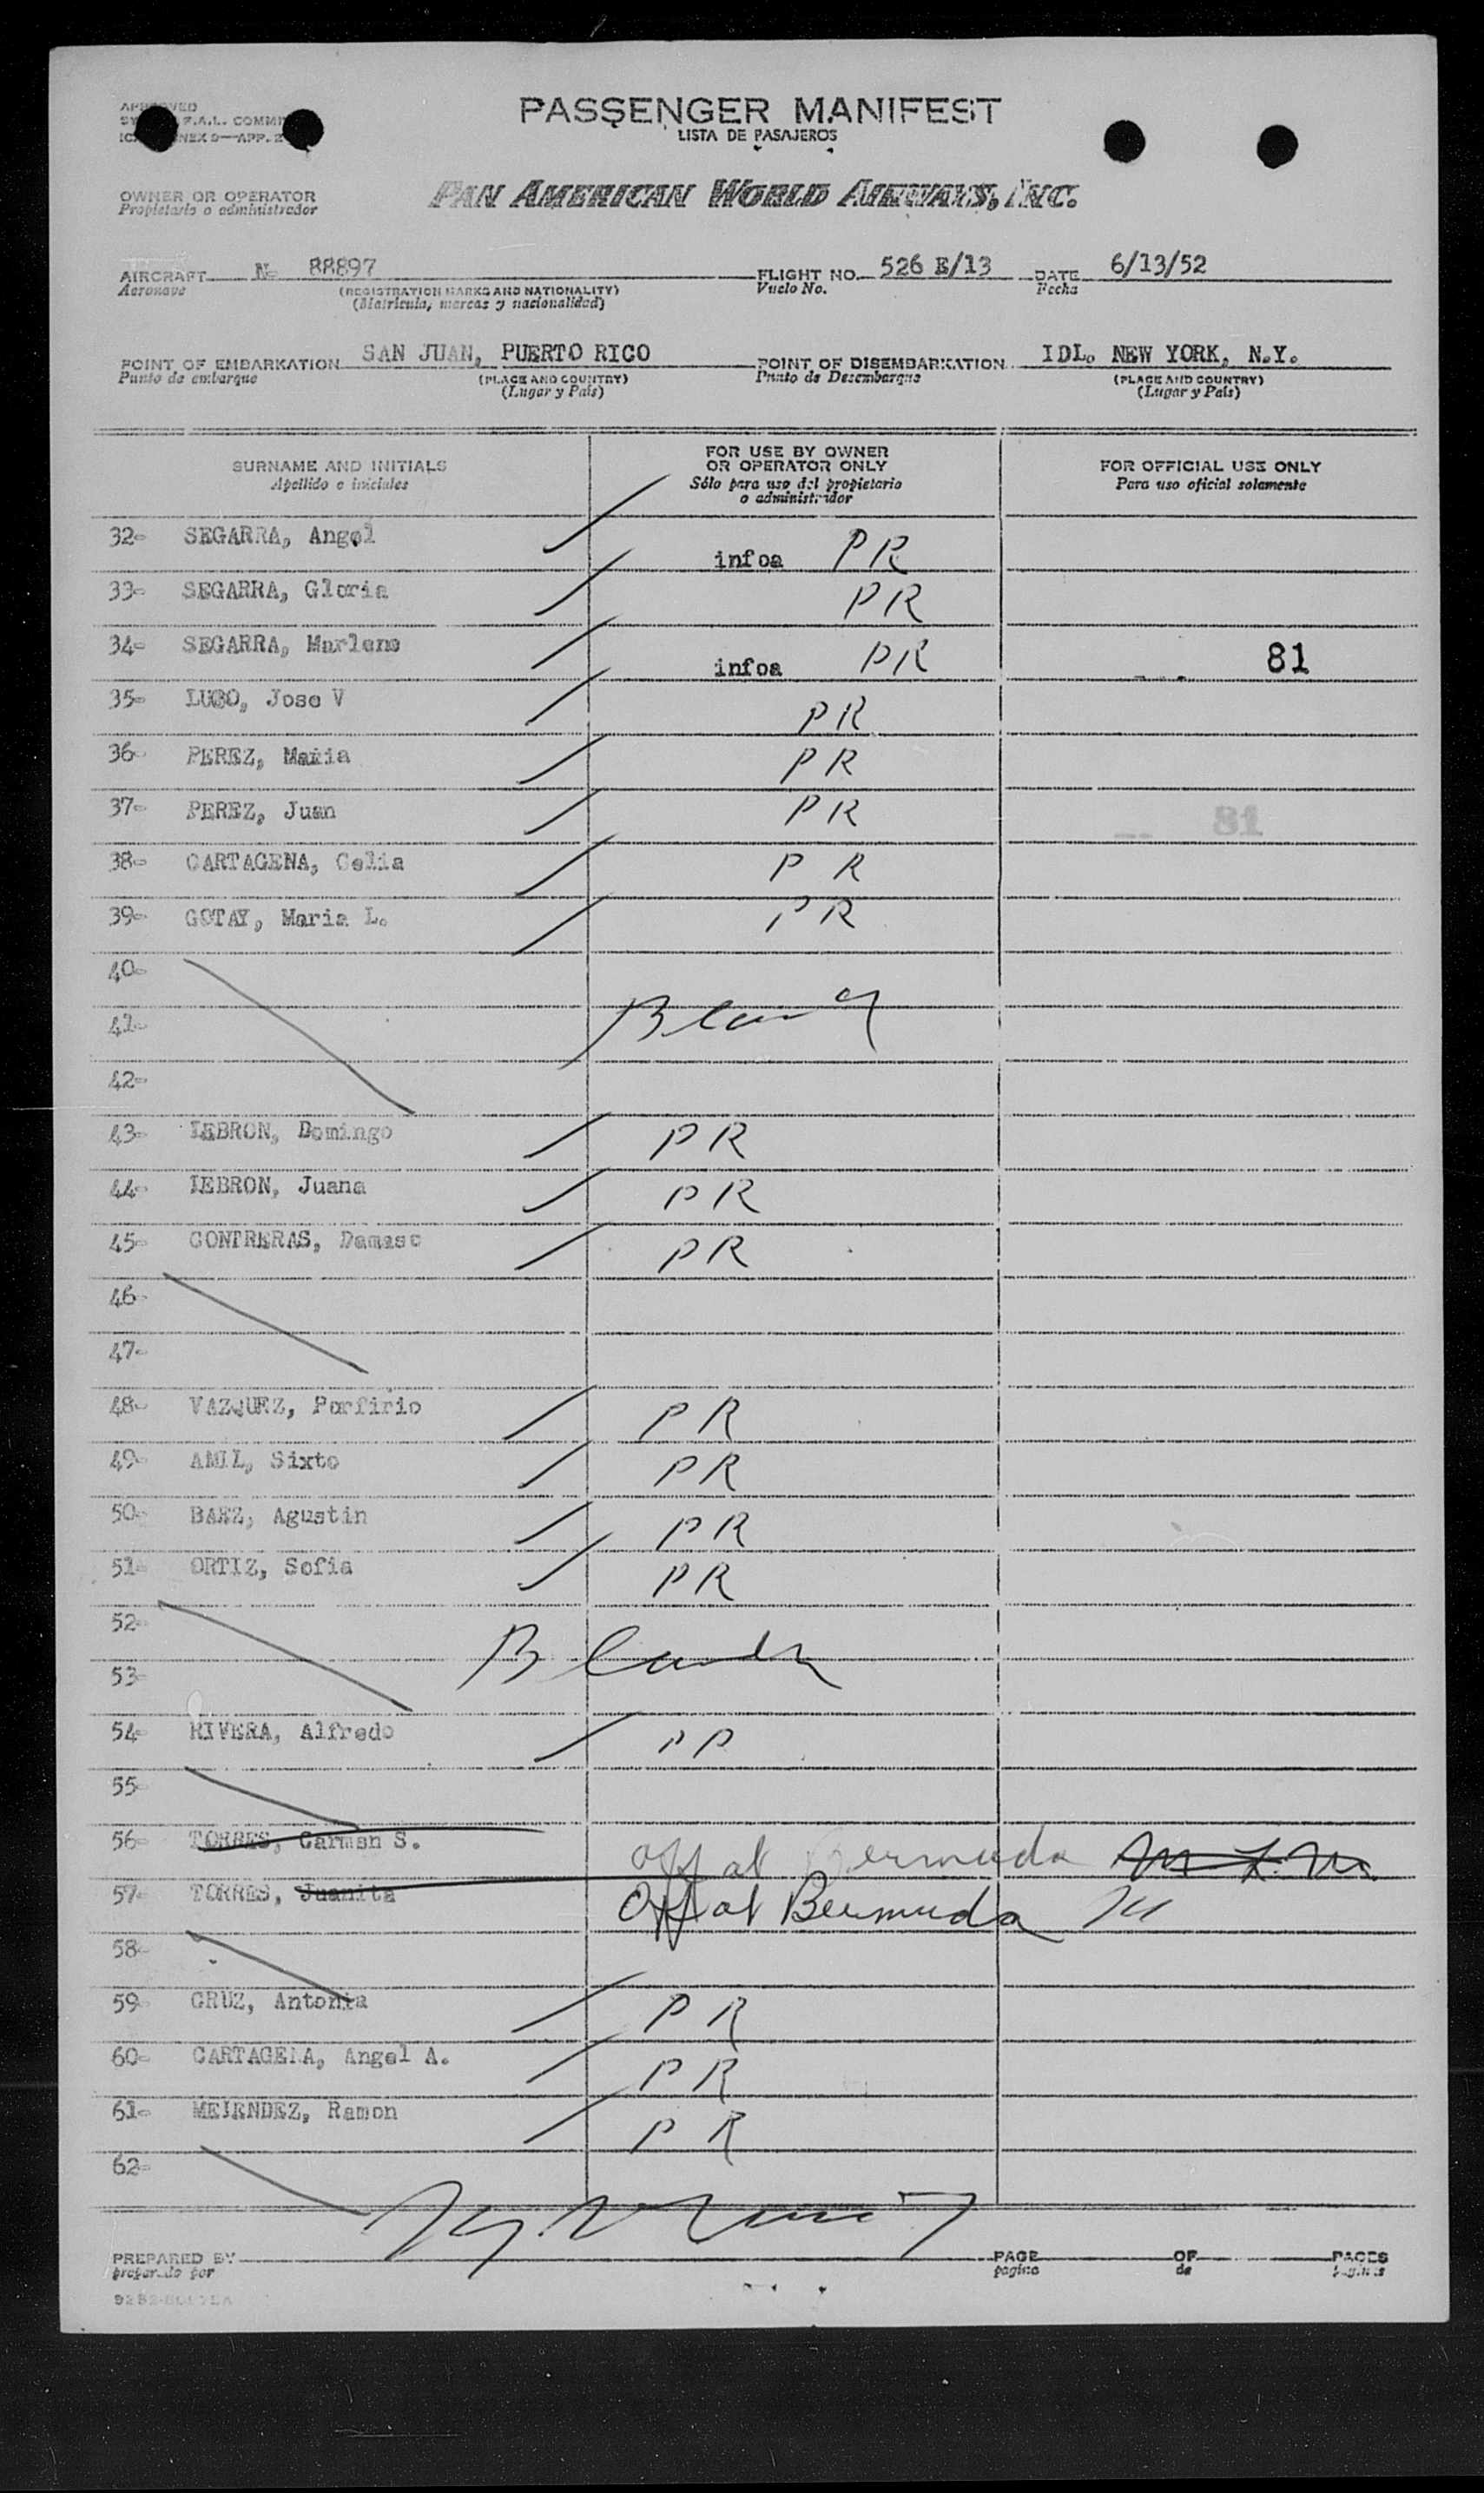 PASSENGER MANIFEST
LISTA DE PASAJEROS
APPROVED
F.A.L. COMMI
NEX 9—APP. 2
OWNER OR OPERATOR
Propietario o administrador
PAN AMERICAN WORLD AIRWAYS, INC.
AIRCRAFT N- 88897 FLIGHT NO. 526 E/13 DATE 6/13/52
Aeronave (REGISTRATION MARKS AND NATIONALITY) Vuelo No. Fecha
(Matricula, marcas y nacionalidad)
POINT OF EMBARKATION SAN JUAN, PUERTO RICO POINT OF DISEMBARKATION IDL. NEW YORK, N.Y.
Punto de embarque (PLACE AND COUNTRY) Punto de Desembarque (PLACE AND COUNTRY)
(Lugar y País) (Lugar y País)
SURNAME AND INITIALS FOR USE BY OWNER OR OPERATOR ONLY FOR OFFICIAL USE ONLY
Apellido e iniciales Sólo para uso del propietario o administrador Para uso oficial solamente
32- SEGARRA, Angel infoa PR
33- SEGARRA, Gloria PR
34- SEGARRA, Marlene infoa PR 81
35- LUGO, Jose V PR
36- PEREZ, Maria PR
37- PEREZ, Juan PR 81
38- CARTAGENA, Celia PR
39- GOTAY, Maria L. PR
40-
41- Blank
42-
43- LEBRON, Domingo PR
44- LEBRON, Juana PR
45- CONTRERAS, Damaso PR
46-
47-
48- VAZQUEZ, Porfirio PR
49- AMIL, Sixto PR
50- BAEZ, Agustin PR
51- ORTIZ, Sofia PR
52-
53- Blank
54- RIVERA, Alfredo PR
55-
56- TORRES, Carmen S. off at Bermuda
57- TORRES, Juanita Off at Bermuda
58-
59- CRUZ, Antonia PR
60- CARTAGENA, Angel A. PR
61- MELENDEZ, Ramon PR
62-
PREPARED BY PAGE OF PAGES
preparado por pagina de paginas